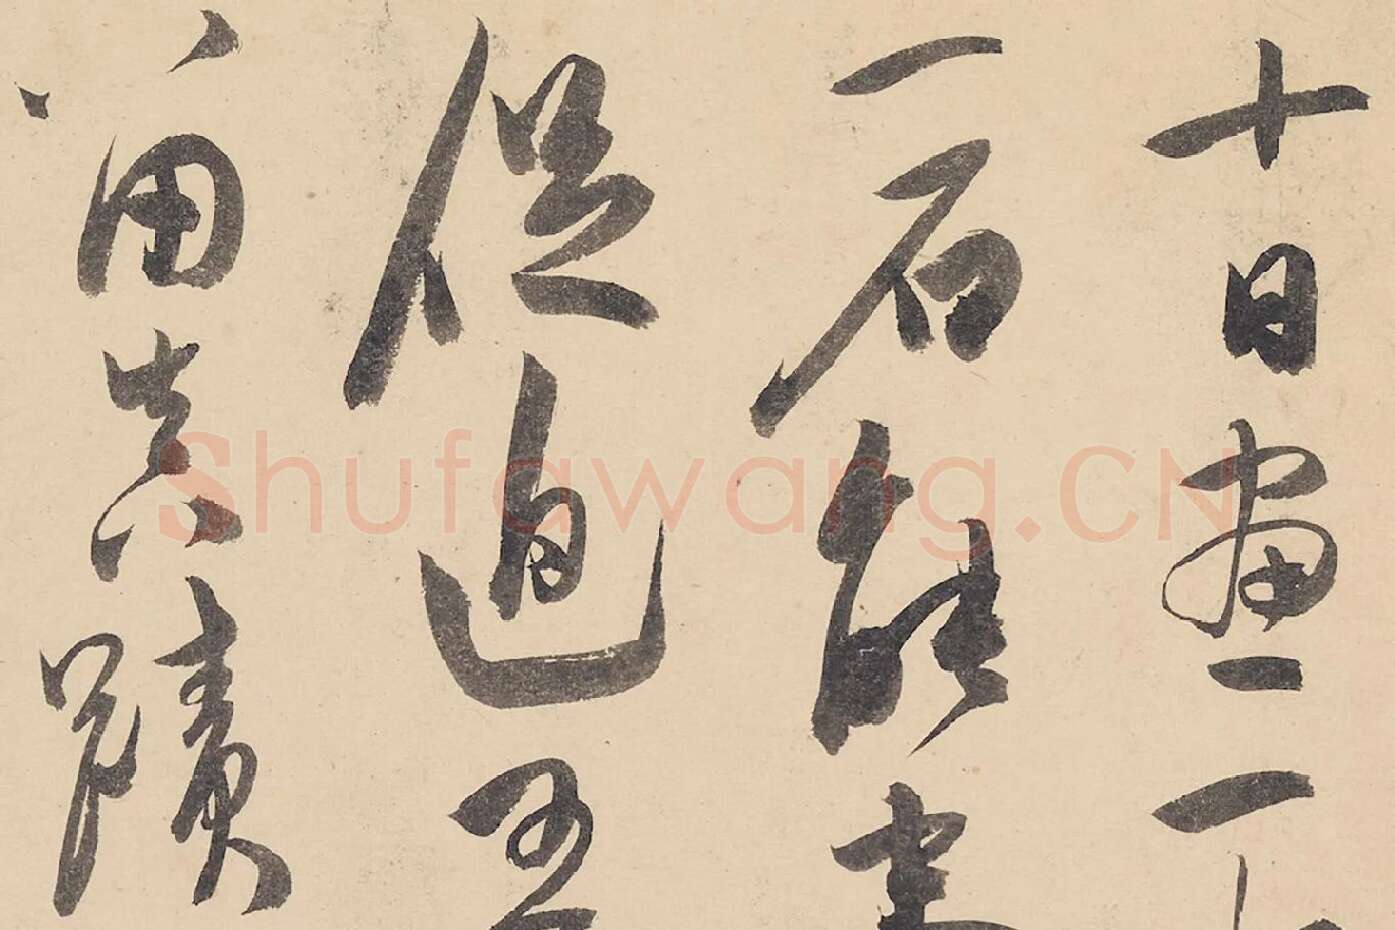 十日畫一
一石能事
促迫王
留真蹟
Shufawang.CN